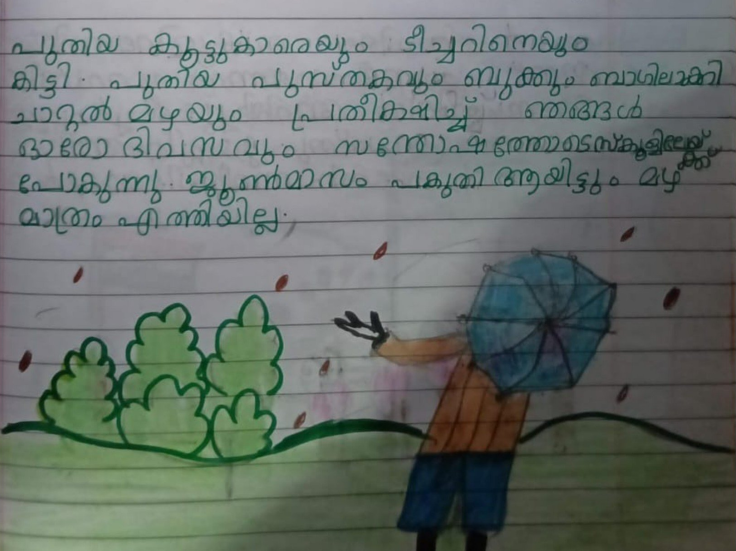 പുതിയ കൂട്ടുകാരെയും ടീച്ചറിനെയും
കിട്ടി. പുതിയ പുസ്തകവും ബുക്കും ബാഗിലാക്കി
ചാറ്റൽ മഴയും പ്രതീക്ഷിച്ച് ഞങ്ങൾ
ഓരോ ദിവസവും സന്തോഷത്തോടെ സ്കൂളിലേയ്ക്ക്
പോകുന്നു. ജൂൺമാസം പകുതി ആയിട്ടും മഴ
മാത്രം എത്തിയില്ല.